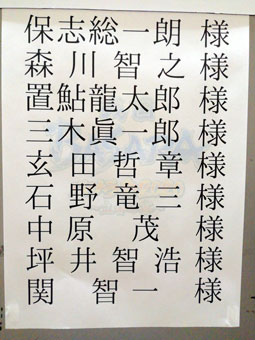 保志総一朗 様
森川智之 様
置鮎龍太郎 様
三木眞一郎 様
玄田哲章 様
石野竜三 様
中原茂 様
坪井智浩 様
関智一 様